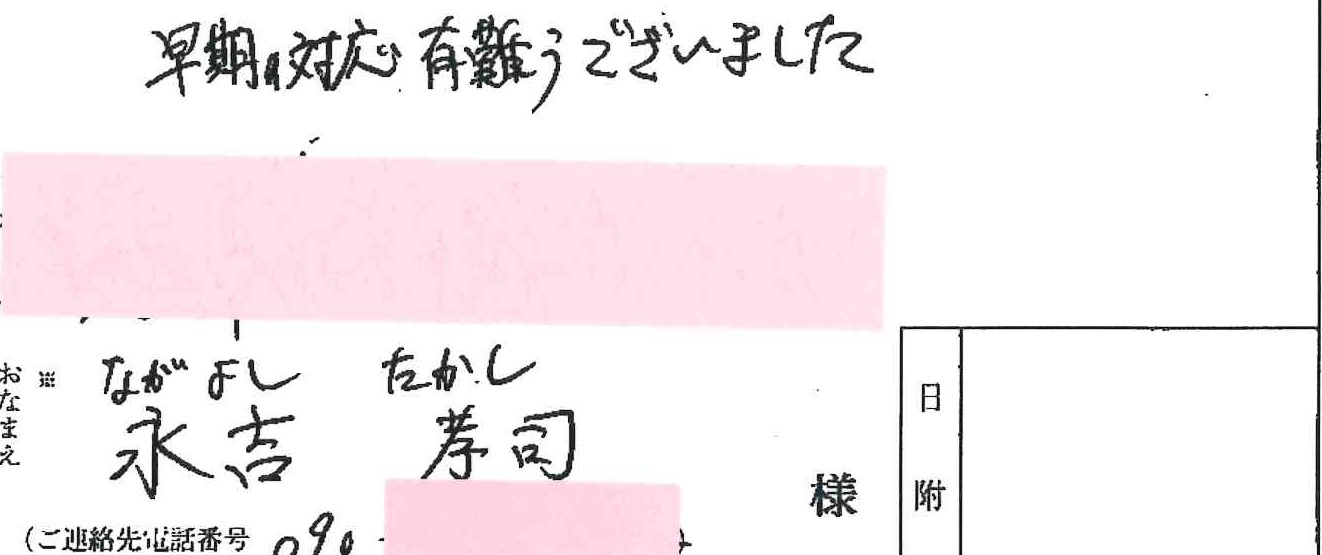 早期の対応有難うございました
ながよし たかし
おなまえ ※ 永吉 孝司 様
(ご連絡先電話番号 090-
日附